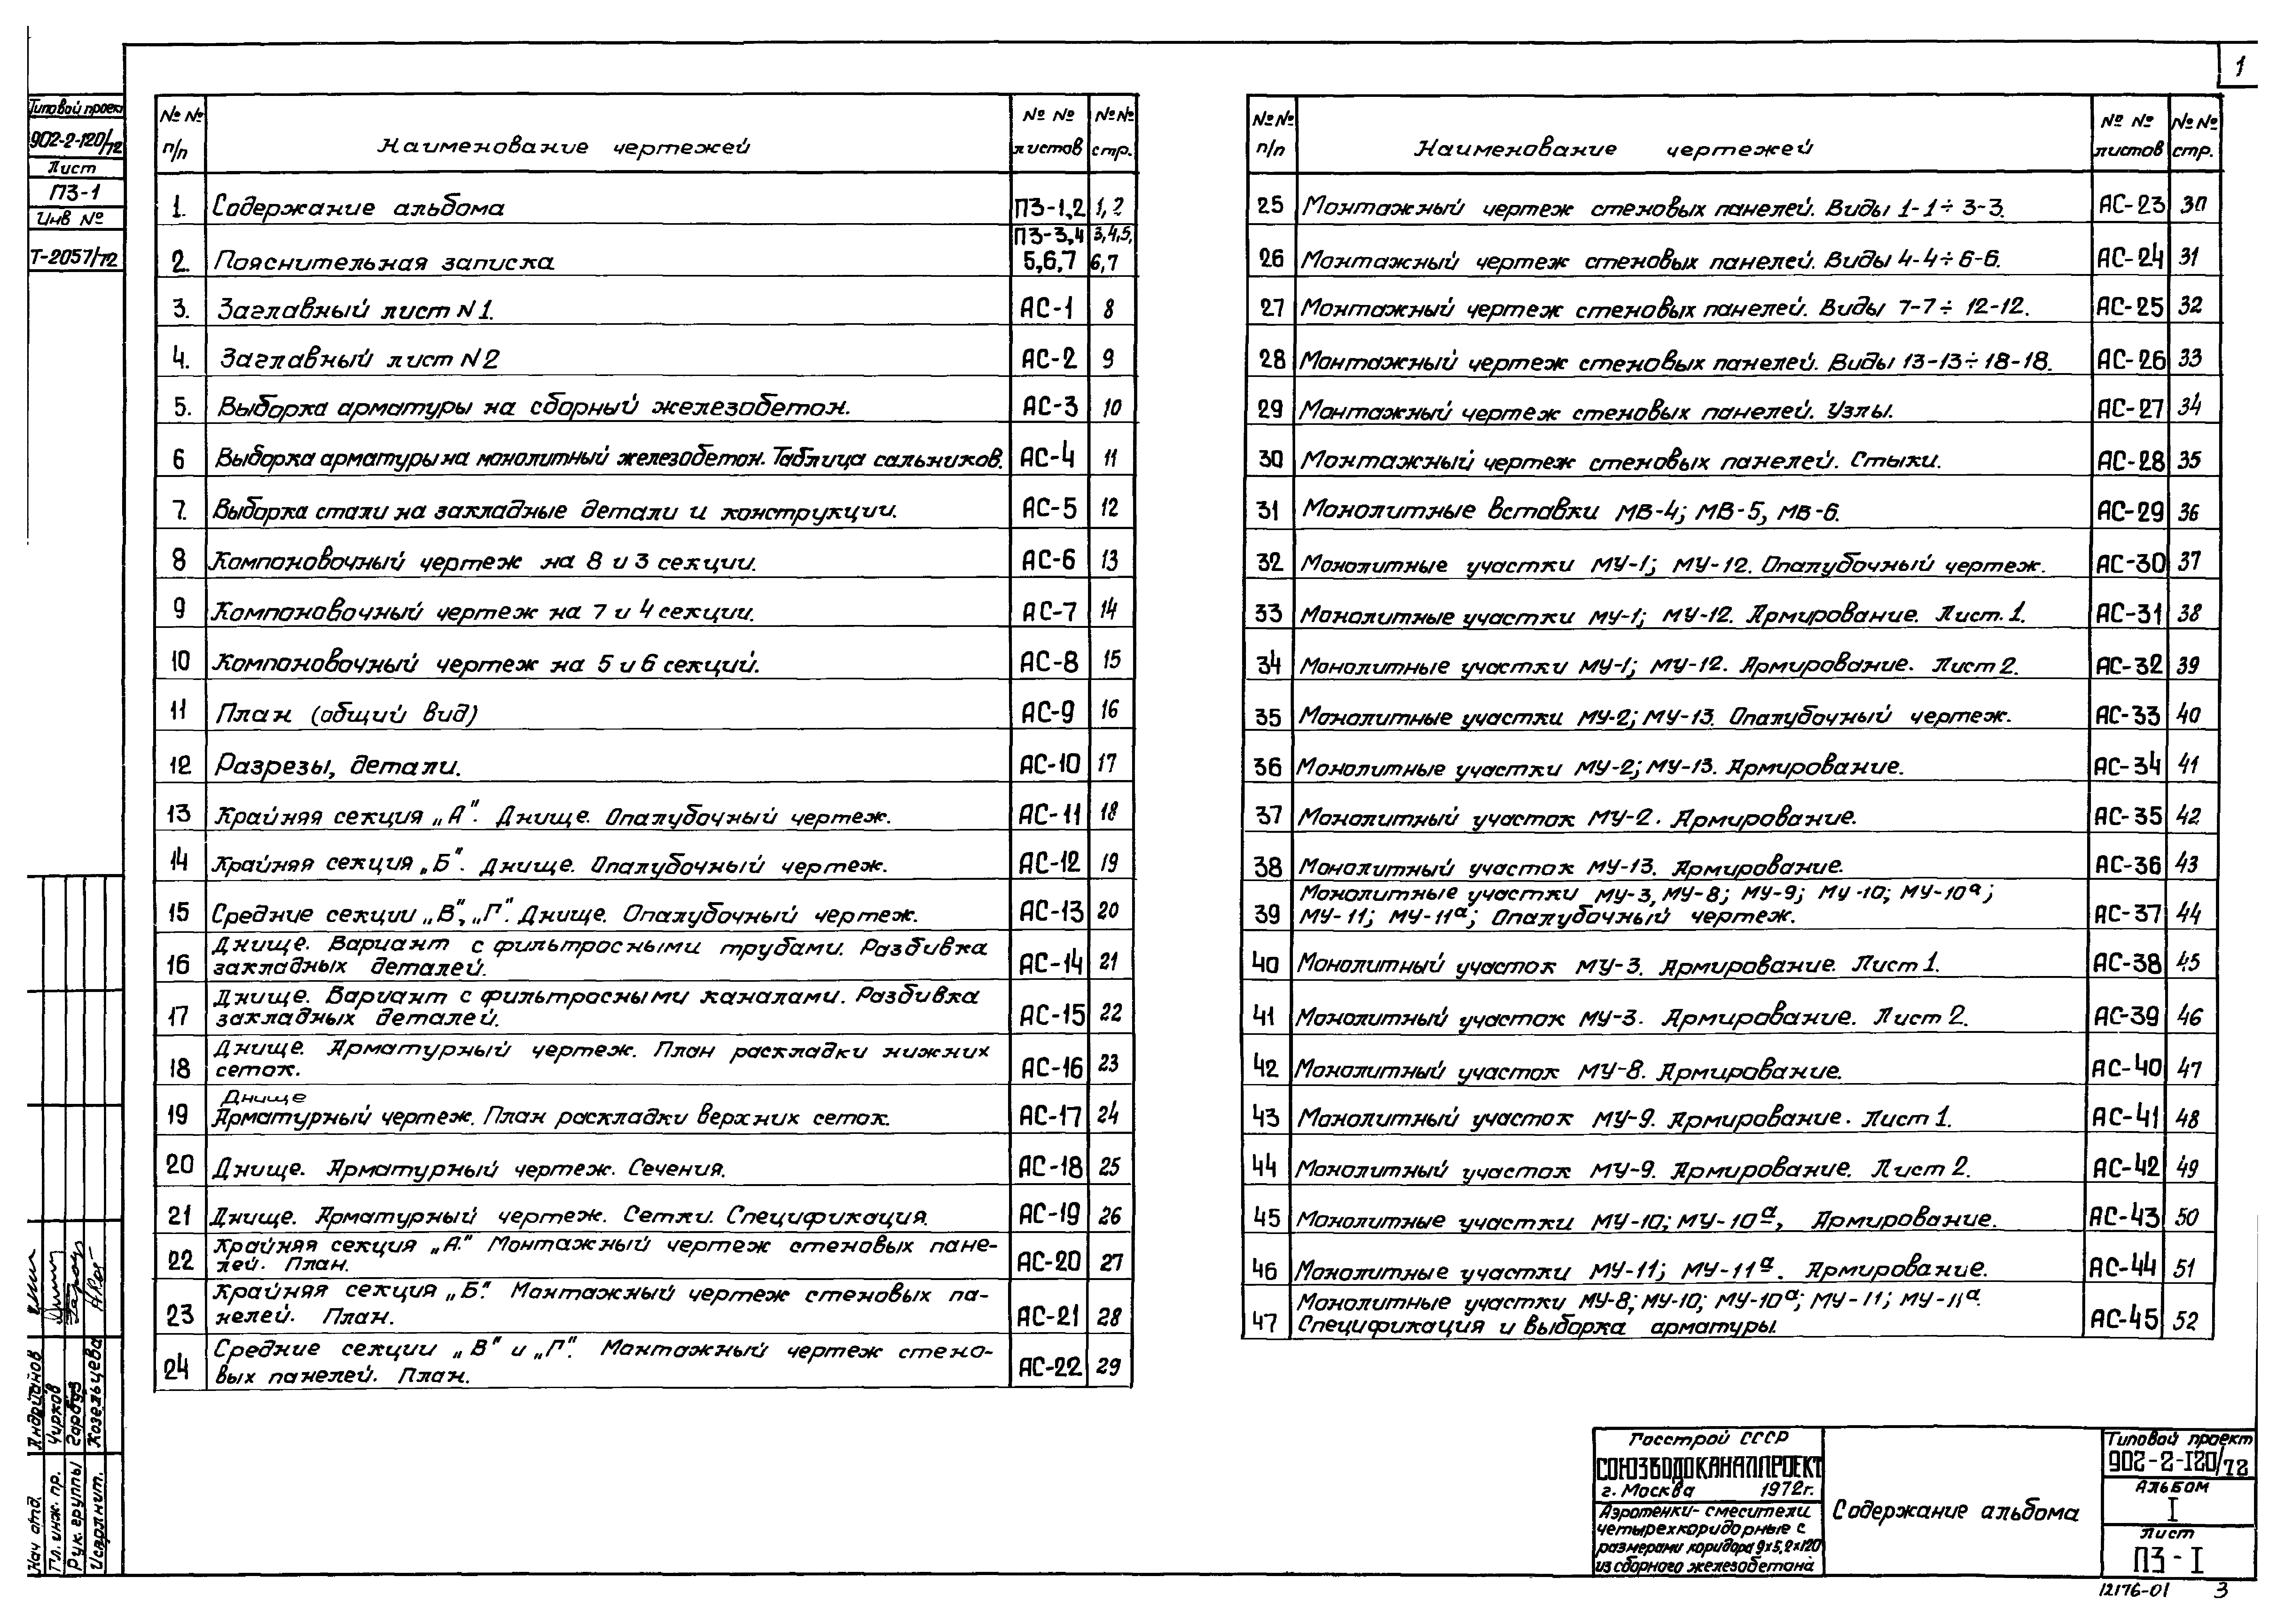 1
Типовой проект
902-2-120/72
Лист
ПЗ-1
Инв №
Т-2057/72
№№ п/п Наименование чертежей №№ листов №№ стр.
1. Содержание альбома ПЗ-1,2 1,2
2. Пояснительная записка ПЗ-3,4 5,6,7 3,4,5, 6,7
3. Заглавный лист N1. АС-1 8
4. Заглавный лист N2 АС-2 9
5. Выборка арматуры на сборный железобетон. АС-3 10
6 Выборка арматуры на монолитный железобетон. Таблица сальников. АС-4 11
7. Выборка стали на закладные детали и конструкции. АС-5 12
8 Компоновочный чертеж на 8 и 3 секции. АС-6 13
9 Компоновочный чертеж на 7 и 4 секции. АС-7 14
10 Компоновочный чертеж на 5 и 6 секций. АС-8 15
11 План (общий вид) АС-9 16
12 Разрезы, детали. АС-10 17
13 Крайняя секция „А". Днище. Опалубочный чертеж. АС-11 18
14 Крайняя секция „Б". Днище. Опалубочный чертеж. АС-12 19
15 Средние секции „В", „Г". Днище. Опалубочный чертеж. АС-13 20
16 Днище. Вариант с фильтросными трубами. Разбивка
закладных деталей. АС-14 21
17 Днище. Вариант с фильтросными каналами. Разбивка
закладных деталей. АС-15 22
18 Днище. Арматурный чертеж. План раскладки нижних
сеток. АС-16 23
19 Днище
Арматурный чертеж. План раскладки верхних сеток. АС-17 24
20 Днище. Арматурный чертеж. Сечения. АС-18 25
21 Днище. Арматурный чертеж. Сетки. Спецификация. АС-19 26
22 Крайняя секция „А." Монтажный чертеж стеновых пане-
лей. План. АС-20 27
23 Крайняя секция „Б". Монтажный чертеж стеновых па-
нелей. План. АС-21 28
24 Средние секции „В" и „Г". Монтажный чертеж стено-
вых панелей. План. АС-22 29
№№ п/п Наименование чертежей №№ листов №№ стр.
25 Монтажный чертеж стеновых панелей. Виды 1-1÷3-3. АС-23 30
26 Монтажный чертеж стеновых панелей. Виды 4-4÷6-6. АС-24 31
27 Монтажный чертеж стеновых панелей. Виды 7-7÷12-12. АС-25 32
28 Монтажный чертеж стеновых панелей. Виды 13-13÷18-18. АС-26 33
29 Монтажный чертеж стеновых панелей. Узлы. АС-27 34
30 Монтажный чертеж стеновых панелей. Стыки. АС-28 35
31 Монолитные вставки МВ-4; МВ-5, МВ-6. АС-29 36
32 Монолитные участки МУ-1; МУ-12. Опалубочный чертеж. АС-30 37
33 Монолитные участки МУ-1; МУ-12. Армирование. Лист. 1. АС-31 38
34 Монолитные участки МУ-1; МУ-12. Армирование. Лист 2. АС-32 39
35 Монолитные участки МУ-2; МУ-13. Опалубочный чертеж. АС-33 40
36 Монолитные участки МУ-2; МУ-13. Армирование. АС-34 41
37 Монолитный участок МУ-2. Армирование. АС-35 42
38 Монолитный участок МУ-13. Армирование. АС-36 43
39 Монолитные участки МУ-3, МУ-8; МУ-9; МУ-10; МУ-10а;
МУ-11; МУ-11а; Опалубочный чертеж. АС-37 44
40 Монолитный участок МУ-3. Армирование. Лист 1. АС-38 45
41 Монолитный участок МУ-3. Армирование. Лист 2. АС-39 46
42 Монолитный участок МУ-8. Армирование. АС-40 47
43 Монолитный участок МУ-9. Армирование. Лист 1. АС-41 48
44 Монолитный участок МУ-9. Армирование. Лист 2. АС-42 49
45 Монолитные участки МУ-10; МУ-10а, Армирование. АС-43 50
46 Монолитные участки МУ-11; МУ-11а. Армирование. АС-44 51
47 Монолитные участки МУ-8; МУ-10; МУ-10а; МУ-11; МУ-11а.
Спецификация и выборка арматуры. АС-45 52
Нач отд.
Гл. инж. пр. Чирков
Рук. группы Гарбуз
Исполнит. Козельцева
Госстрой СССР
СОЮЗВОДОКАНАЛПРОЕКТ
г. Москва 1972г.
Аэротенки-смесители
четырехкоридорные с
размерами коридора 9х5,2х120
из сборного железобетона
Содержание альбома
Типовой проект
902-2-120/72
Альбом
I
Лист
ПЗ-I
12176-01 3